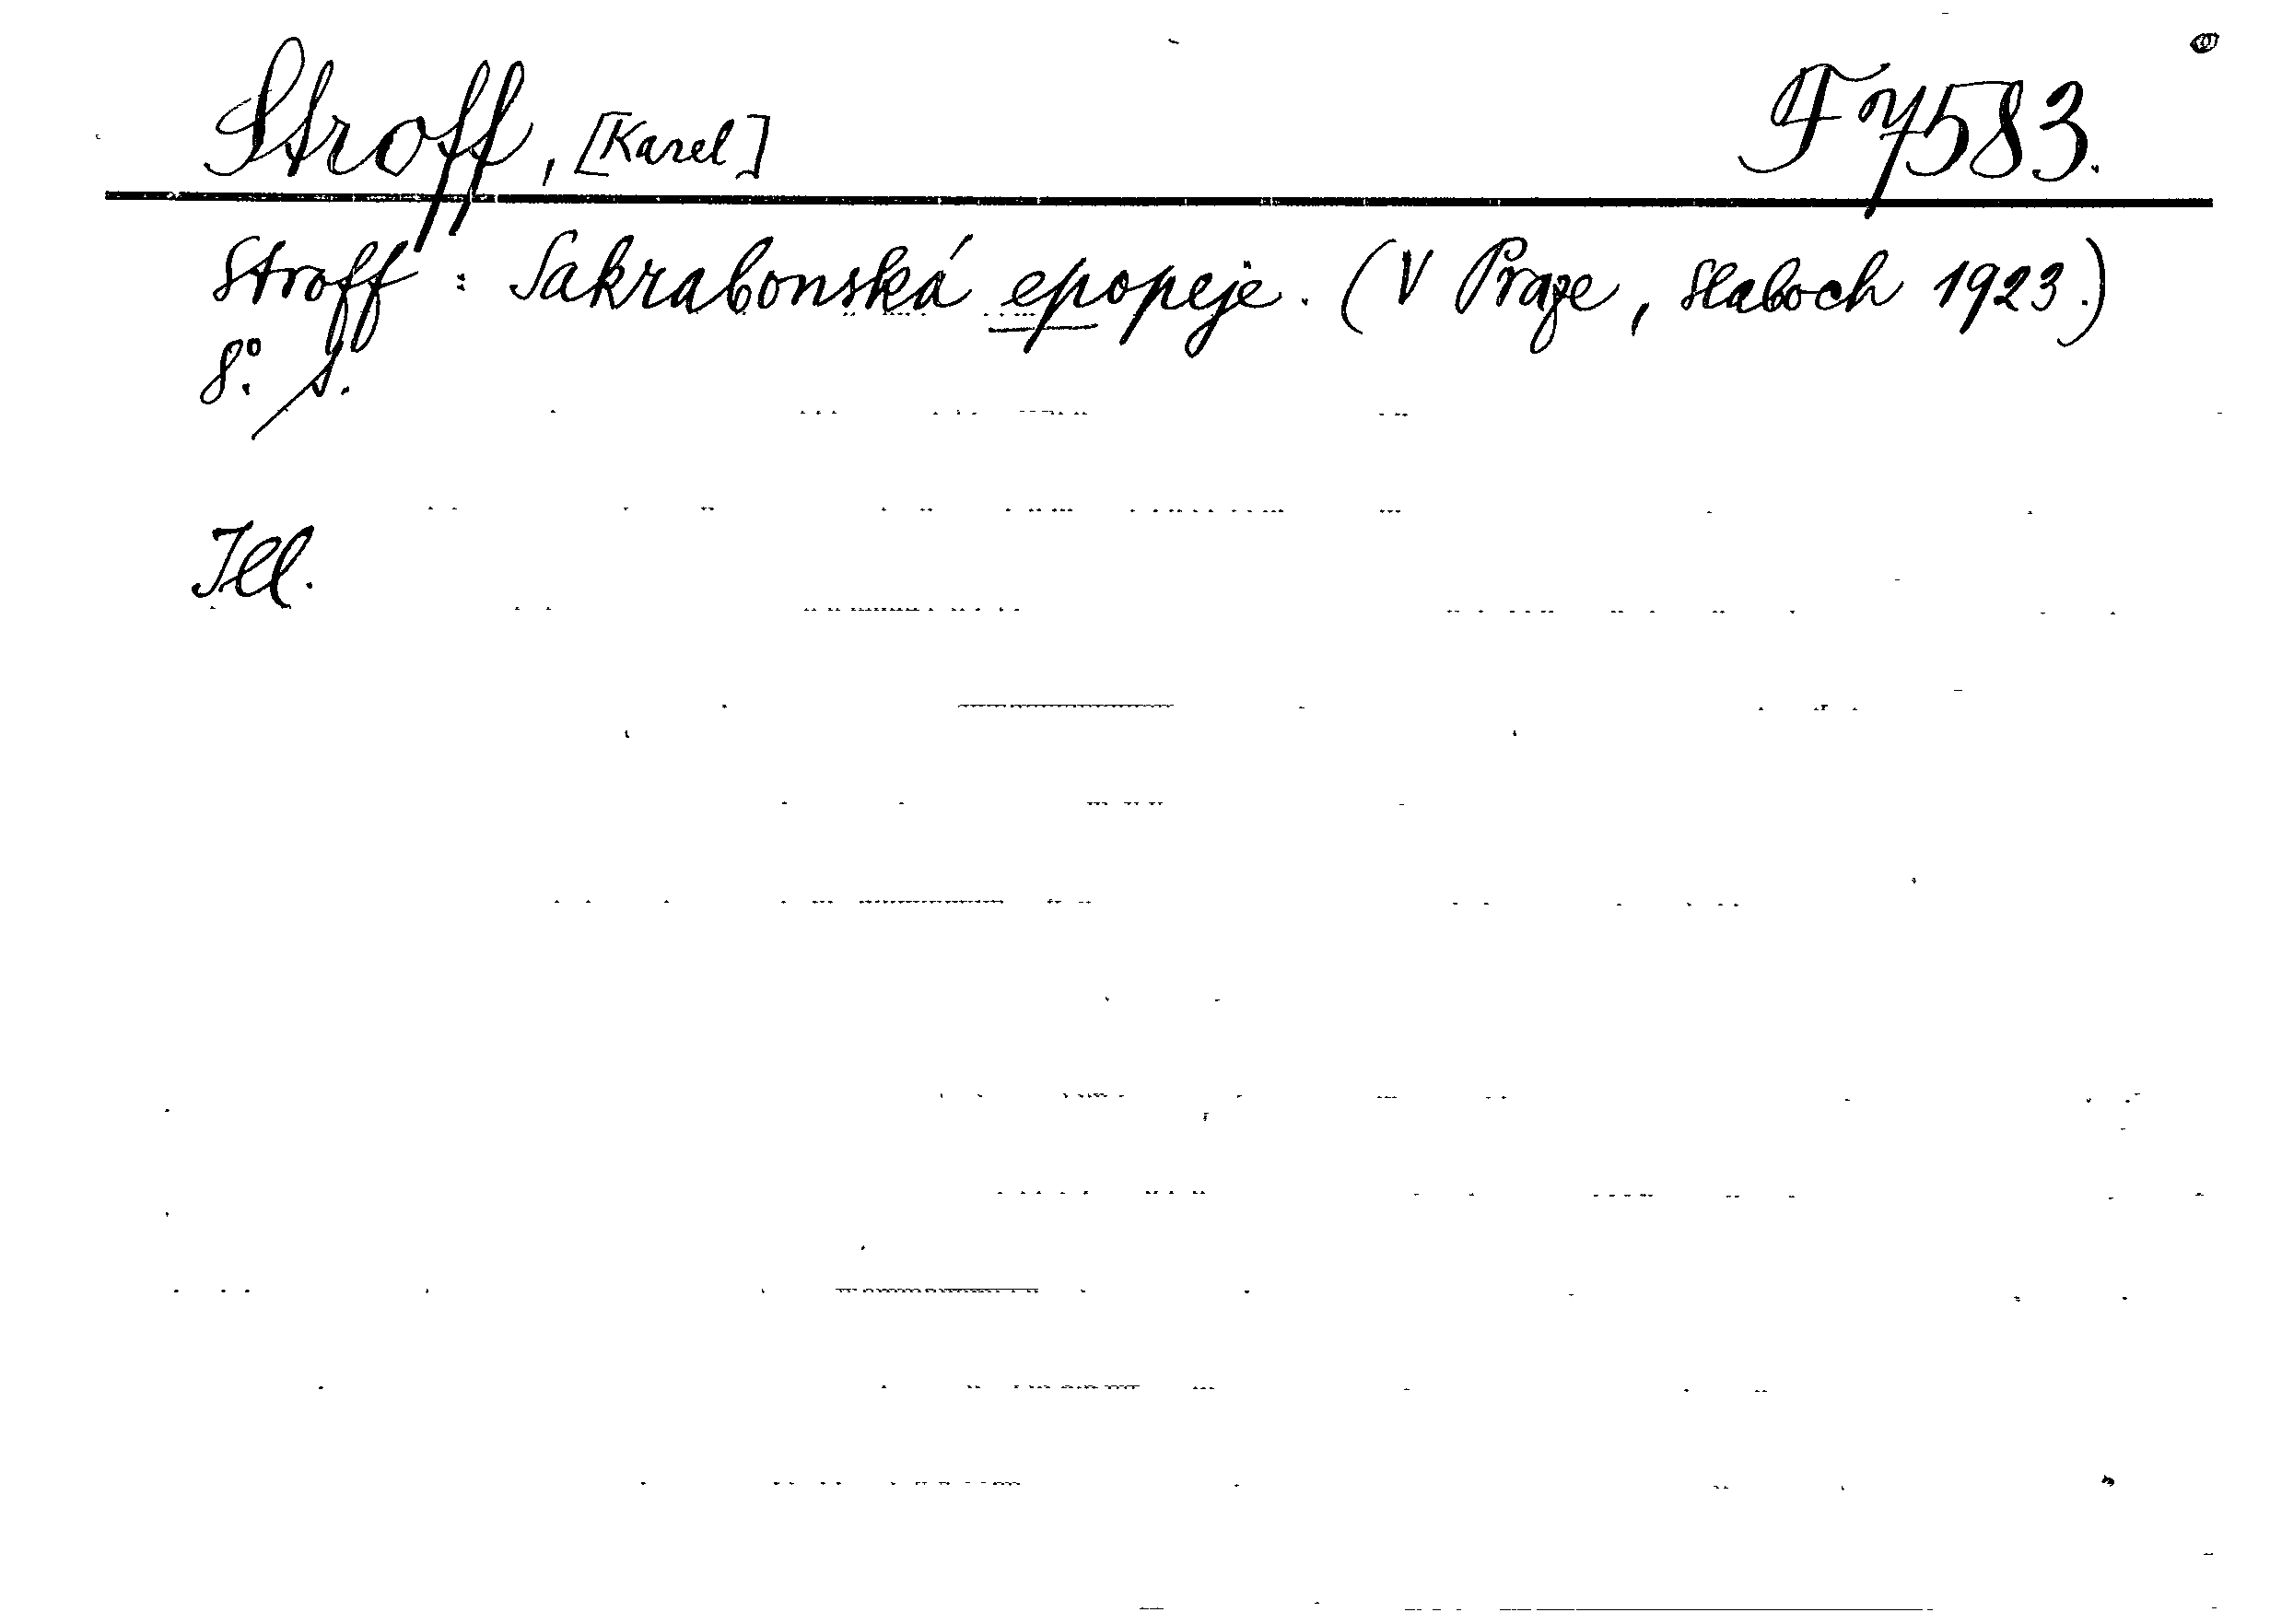 Stroff, [Karel] F 7583.
Stroff: Sakrabonská epopeje. (V Praze, Slaboch 1923.)
8°. s.
Ill.